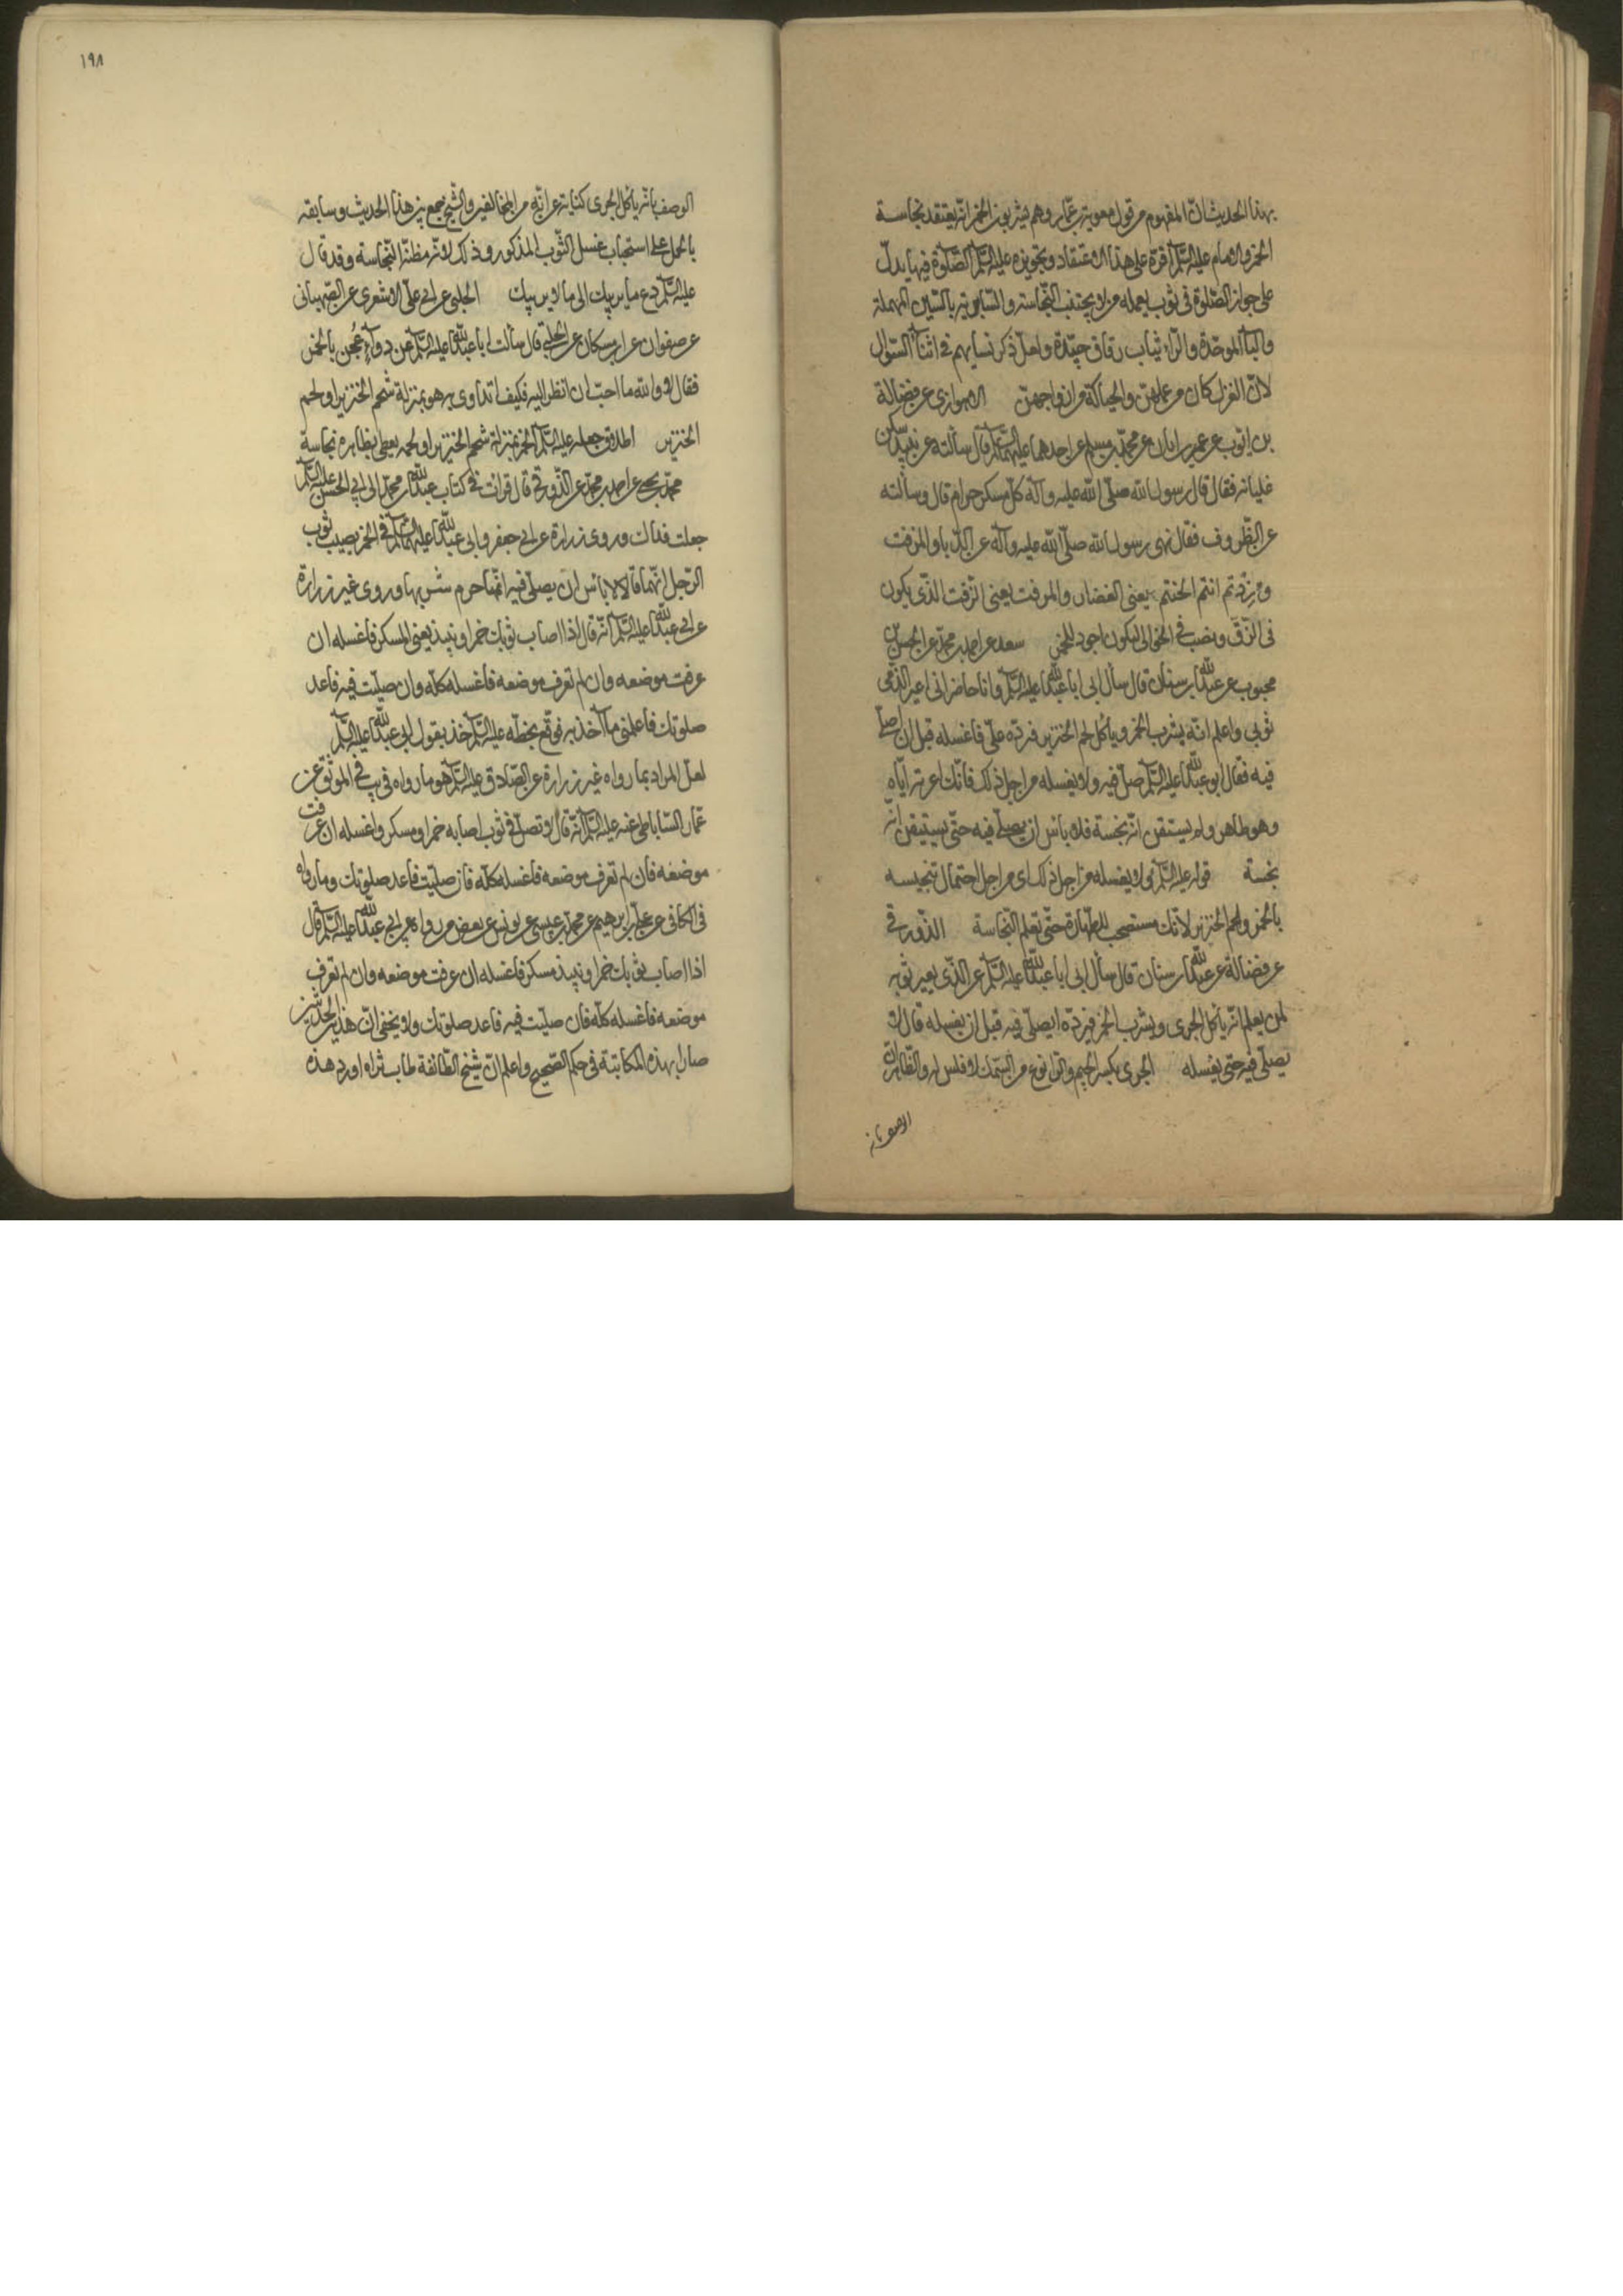 بهذا الحديث انّ المفهوم من قول معوية بن عمّار وهم يشربون الخمر انّه يعتقد نجاسة
الخمر والامام عليه السّلم اقرّه على هذا الاعتقاد وتجويزه عليه السّلم الصّلوة فيها يدلّ
على جواز الصّلوة في ثوب يعمله من لا يجتنب النّجاسة والسّابريّة بالسّين المهملة
والبآء الموحّدة والرّاء ثياب رقاق جيّدة ولعلّ ذكر نسايهم في اثنآء السّؤال
لانّ الغزل كان من عملهنّ والحياكة من ازواجهنّ الاهوازي عن فضالة
بن ايّوب عن عمر بن ابان عن محمّد بن مسلم عن احدهما عليهما السّلم قال سألته عن نبيذ سكن
غليانه فقال قال رسول الله صلّى الله عليه وآله كلّ مسكر حرام قال وسألته
عن الظّروف فقال نهى رسول الله صلّى الله عليه وآله عن الدّبا والمزفت
وزدتم انتم الحنتم يعني الغضار والمزفت يعني الزّفت الذّي يكون
في الزّقّ ويصبّ في الخوابي ليكون اجود للخمر سعد عن احمد بن محمّد عن الحسن بن
محبوب عن عبد الله بن سنان قال سأل ابي ابا عبد الله عليه السّلم وانا حاضر اني اعير الذّمّي
ثوبي واعلم انّه يشرب الخمر ويأكل لحم الخنزير فيردّه عليّ فاغسله قبل ان اصلّي
فيه فقال ابو عبد الله عليه السّلم صلّ فيه ولا تغسله من اجل ذلك فانّك اعرته ايّاه
وهو طاهر ولم تستيقن انّه نجسه فلا بأس ان تصلّي فيه حتّى تستيقن انّه
نجسه قوله عليه السّلم ولا تغسله من اجل ذلك اي من اجل احتمال تنجيسه
بالخمر ولحم الخنزير لانّك مستصحب للطّهارة حتّى تعلم النّجاسة الذّورقي
عن فضالة عن عبد الله بن سنان قال سأل ابي ابا عبد الله عليه السّلم عن الذّي يعير ثوبه
لمن يعلم انّه يأكل الجرّي ويشرب الخمر فيردّه ايصلّي فيه قبل ان يغسله قال لا
يصلّي فيه حتى يغسله الجرّي بكسر الجيم والرّا نوع من السّمك لا فلس له والظّاهر انّ
الوصف بانّه
١٩٨
الوصف بانّه يأكل الجرّي كناية عن انّه من المخالفين والشّيخ جمع بين هذا الحديث وسابقه
بالحمل على استحباب غسل الثّوب المذكور وذلك لانّه مظنّة النّجاسة وقد قال
عليه السّلم دع ما يريبك الى ما لا يريبك الحلبي عن ابي عليّ الاشعري عن الصّهباني
عن صفوان عن ابن مسكان عن الحلبي قال سألت ابا عبد الله عليه السّلم عن دوآء عُجن بالخمر
فقال لا والله ما احبّ ان انظر اليه فكيف اتداوى به هو بمنزلة شحم الخنزير او لحم
الخنزير اطلاق جعله عليه السّلم الخمر بمنزلة شحم الخنزير او لحمه يعطي بظاهره نجاسة
محمّد بن يحيى عن احمد بن محمّد عن الذّورقي قال قرأت في كتاب عبد الله بن محمّد الى ابي الحسن عليه السّلم
جعلت فداك وروى زرارة عن ابي جعفر وابي عبد الله عليهما السّلم في الخمر يصيب ثوب
الرّجل انّهما قالا لا باس ان يصلّي فيه انّما حرم شربها وروى غير زرارة
عن ابي عبد الله عليه السّلم انّه قال اذا اصاب ثوبك خمر او نبيذ يعني المسكر فاغسله ان
عرفت موضعه وان لم تعرف موضعه فاغسله كلّه وان صلّيت فيه فاعد
صلوتك فاعلمني ما آخذ به فوقّع بخطّه عليه السّلم خذ بقول ابي عبد الله عليه السّلم
لعلّ المراد بما رواه غير زرارة عن الصّادق عليه السّلم هو ما رواه في يب في الموثّق عن
عمّار السّاباطي عنه عليه السّلم انّه قال لا تصلّ في ثوب اصابه خمر او مسكر واغسله ان عرفت
موضعه فان لم تعرف موضعه فاغسله كلّه فان صلّيت فاعد صلوتك وما رواه
في الكافي عن عليّ بن ابرهيم عن محمّد بن عيسى عن يونس عن بعض من رواه عن ابي عبد الله عليه السّلم قال
اذا اصاب ثوبك خمر او نبيذ مسكر فاغسله ان عرفت موضعه وان لم تعرف
موضعه فاغسله كلّه فان صلّيت فيه فاعد صلوتك ولا يخفى انّ هذين الحديثين
صارا بهذه المكاتبة في حكم الصّحيح واعلم انّ شيخ الطّائفة طاب ثراه اورد هذه